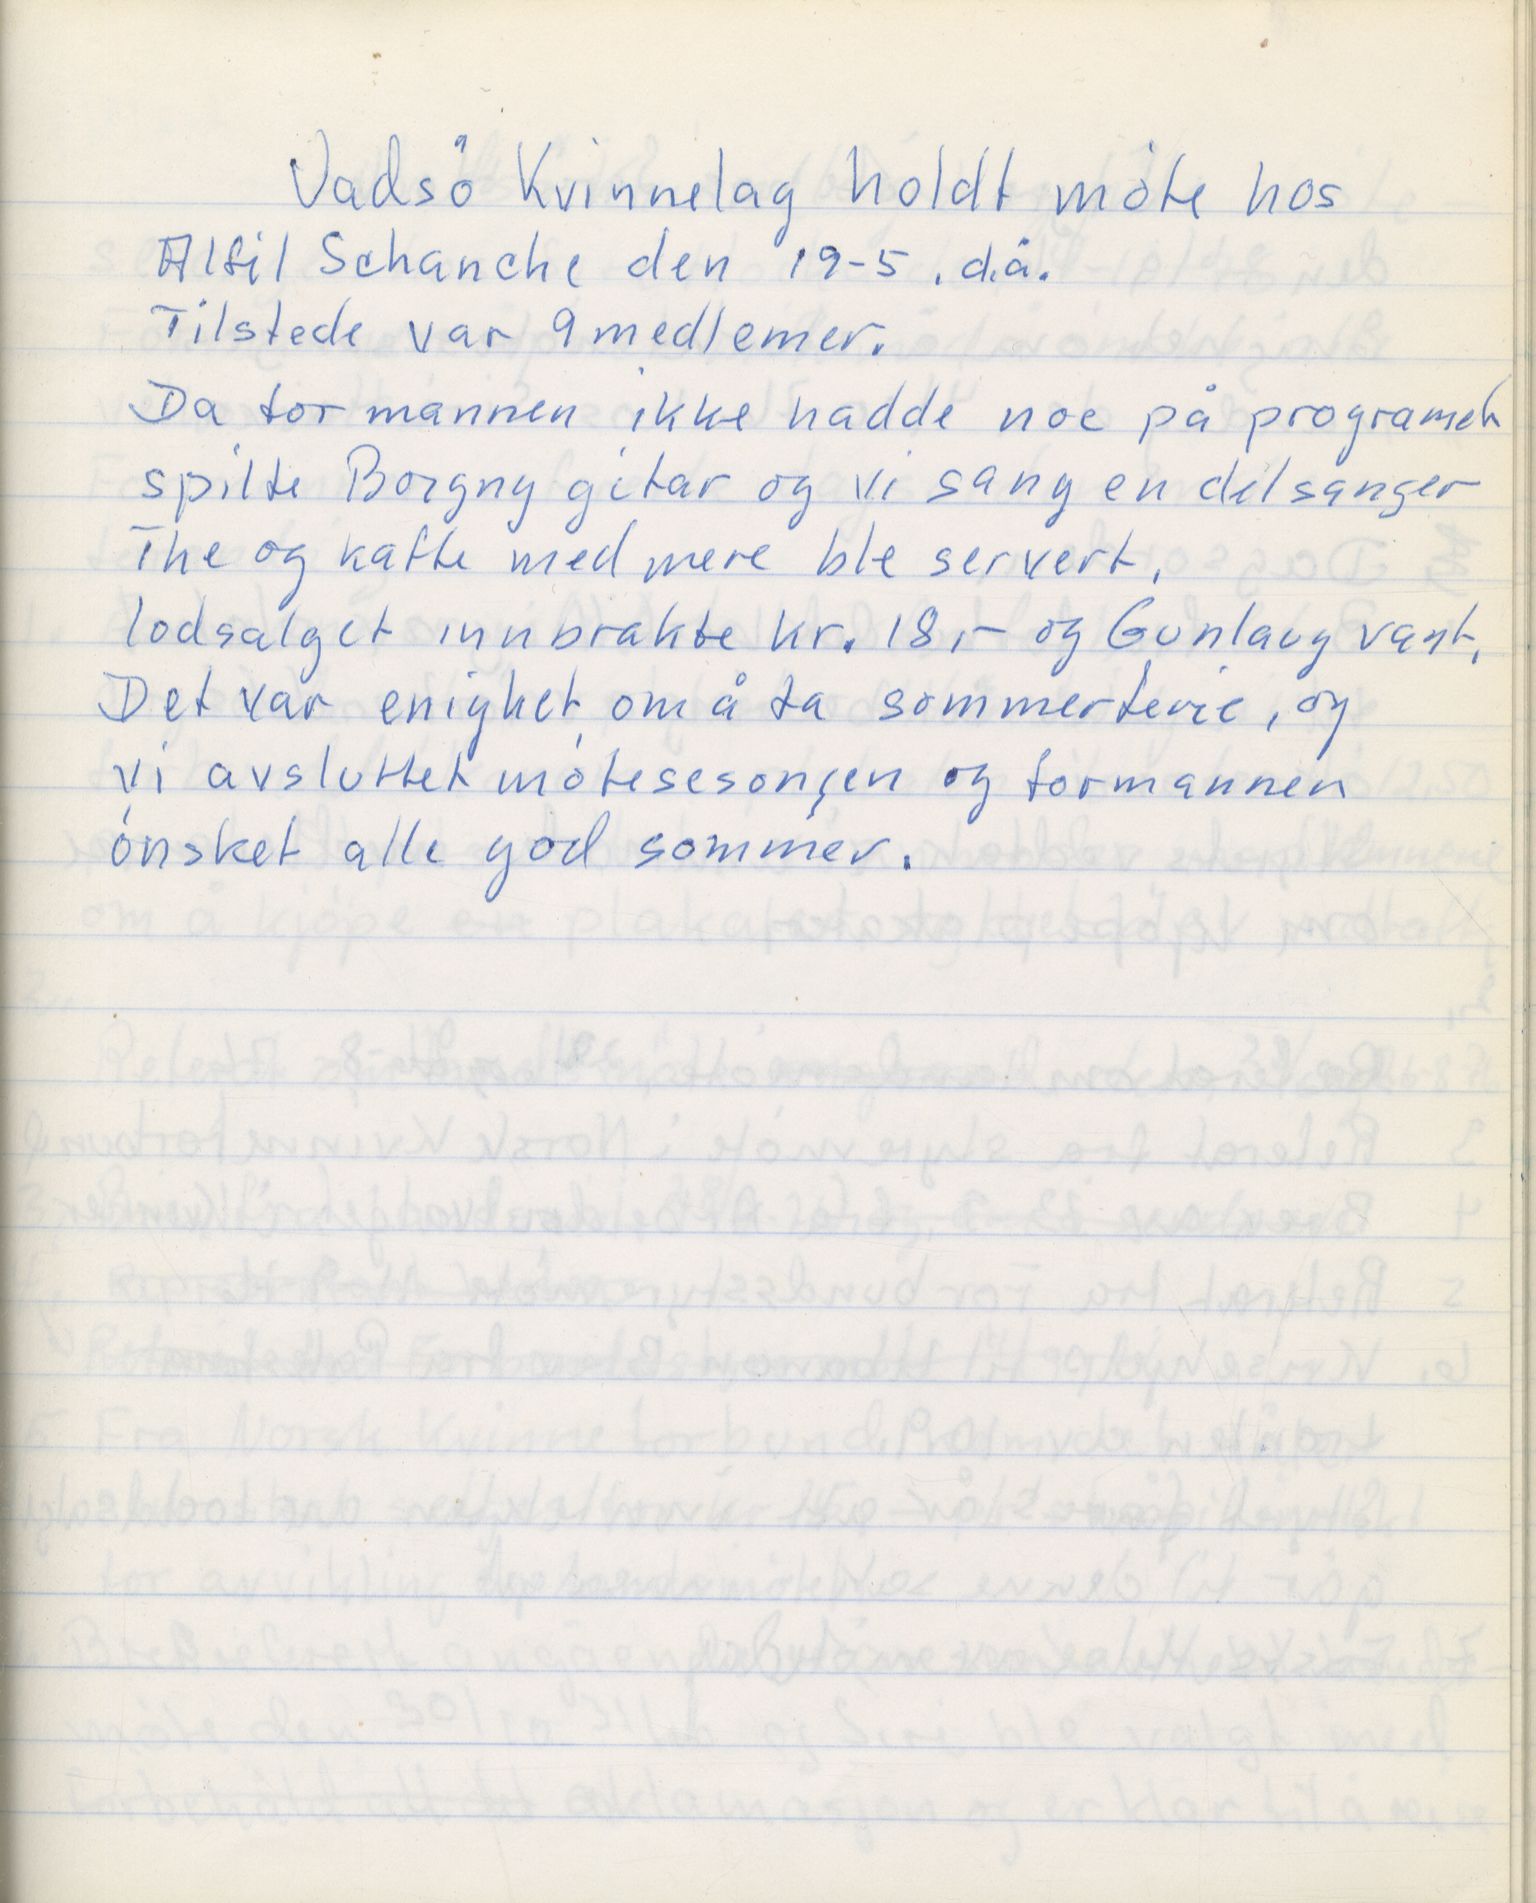 Vadsö Kvinnelag holdt möte hos
Alfil Schanche den 19-5.d.å.
Tilstede var 9 medlemer.
Da formannen ikke hadde noe på programet
spilte Borgny gitar og vi sang en del sanger
The og kaffe med mere ble servert.
lodsalget innbrakte kr. 18,- og Gunlaug vant.
Det var enighet om å ta sommerferie, og
vi avsluttet mötesesongen og formannen
önsket alle god sommer.